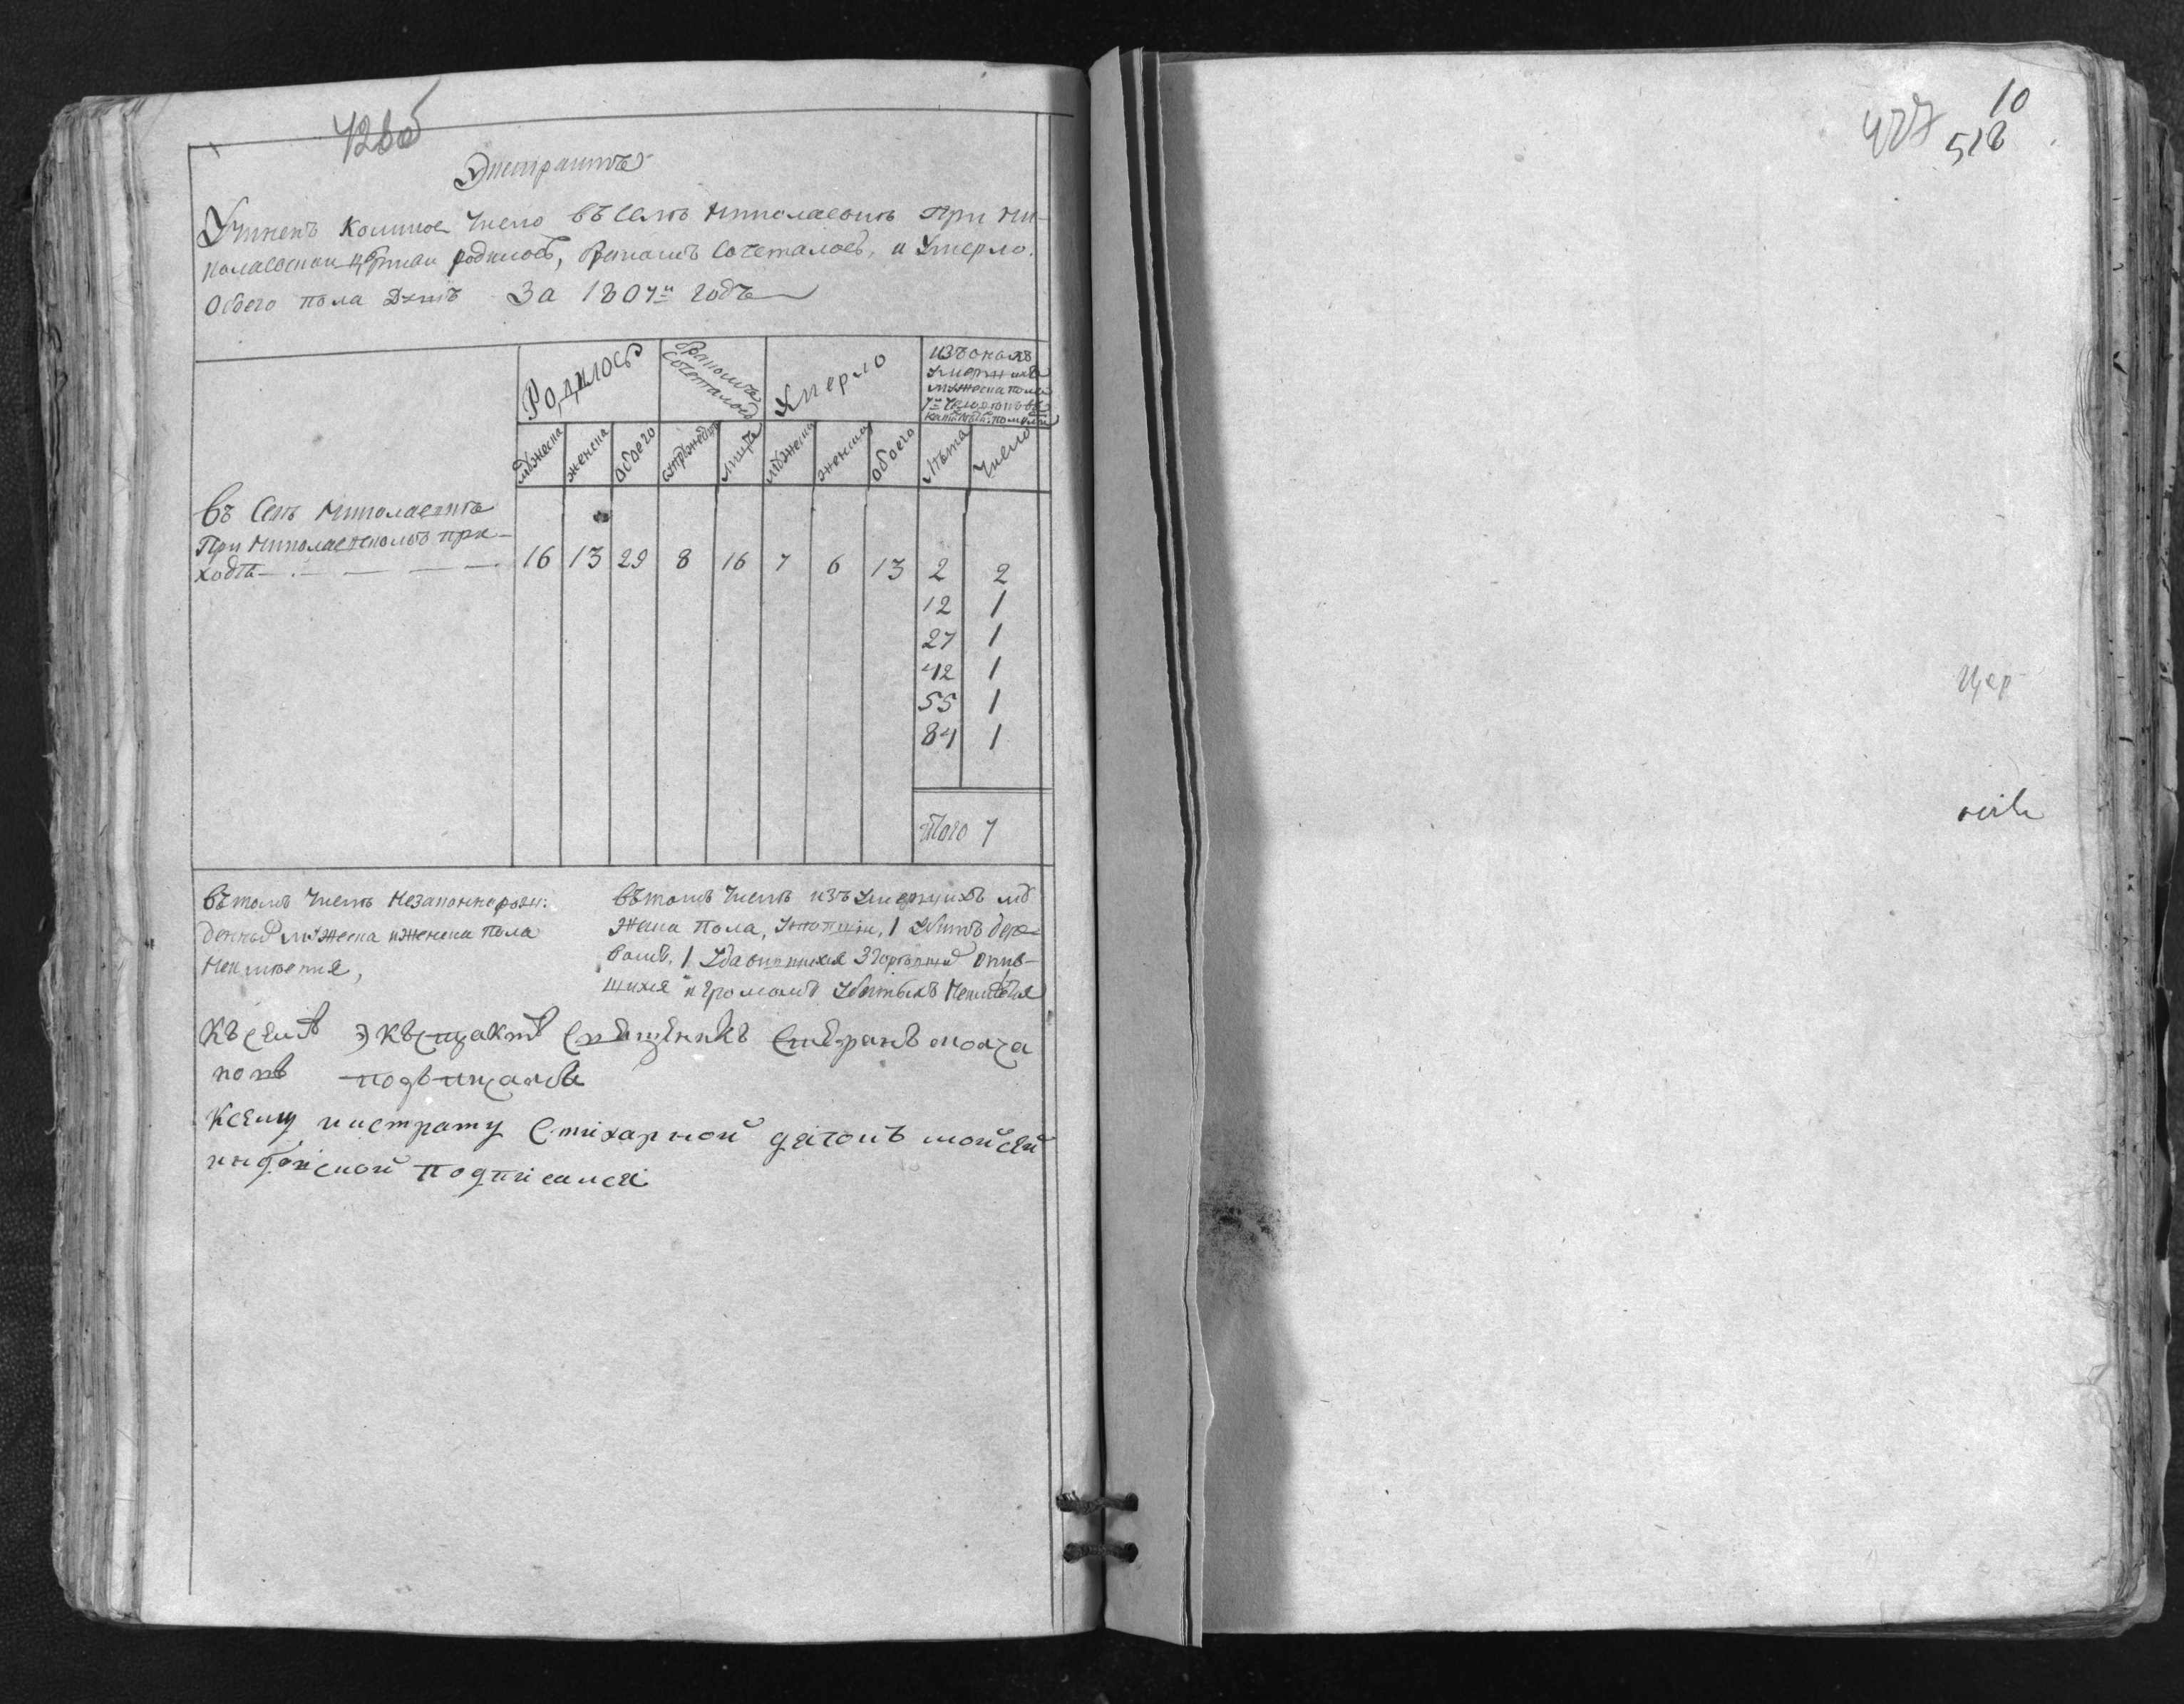 426об
Экстрактъ
Учиненъ коликое число въ селѣ Николаевкѣ при Ни-
колаевской церкви родилось, бракомъ сочеталось, и умерло.
обоего пола душъ за 1807й годъ
Родилось
бракомъ сочеталось
Умерло
изъ оныхъ
умершихъ
мужеска пола
7и
мужеска
женска
обоего
лица
мужеска
женска
обоего
лѣта
число
въ селѣ Николаевкѣ
При Николаевскомъ при-
ходѣ
16 13 29 8 16 7 6 13 2 2
12 1
27 1
42 1
55 1
84 1
Итого 7
въ томъ числѣ незаконнорож:
денныхъ мужеска и женска пола
неимѣется,
въ томъ числѣ изъ умершихъ му
жеска пола, утопшій, 1 убитъ дере-
вомъ, 1 удавившихся згорѣвшихъ опив-
шихся и громомъ убитыхъ неимѣется
Къ сему экстракту священникъ
подписался
Ксему екстракту стихарной дячокъ мойсей
подписался
427
10
518
Цер